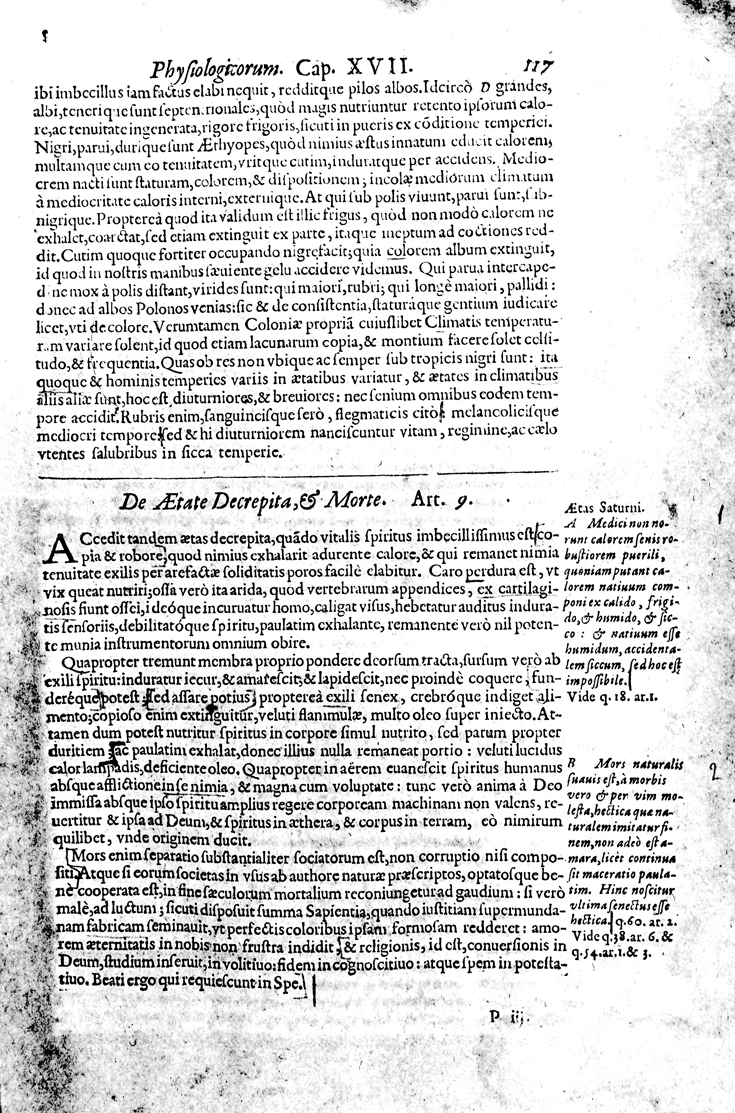 Physiologicorum. Cap. XVII. 117
ibi imbecillus iam factus elabi nequit, redditque pilos albos. Idcircò D grandes,
albi, tenerique sunt septentrionales, quòd magis nutriuntur retento ipsorum calo-
re, ac tenuitate ingenerata, rigore frigoris, sicuti in pueris ex cõditione temperiei.
Nigri, parui, durique sunt Æthyopes, quòd nimius æstus innatum educit calorem,
multamque cum eo tenuitatem, vritque cutim, induratque per accidens. Medio-
crem nacti sunt staturam, colorem, & dispositionem; incolæ mediorum climatum
à mediocritate caloris interni, externique. At qui sub polis viuunt, parui sunt, sub-
nigrique. Propterea quod ita validum est illic frigus, quòd non modò calorem ne
exhalet, coarctat, sed etiam extinguit ex parte, itaque ineptum ad coctiones red-
dit. Cutim quoque fortiter occupando nigrefacit; quia colorem album extinguit,
id quod in nostris manibus sæuiente gelu accidere videmus. Qui parua intercape-
dine mox à polis distant, virides sunt: qui maiori, rubri; qui longè maiori, pallidi:
donec ad albos Polonos venias: sic & de consistentia, staturáque gentium iudicare
licet, vti de colore. Verumtamen Coloniæ propriã cuiuslibet Climatis temperatu-
ram variare solent, id quod etiam lacunarum copia, & montium facere solet celsi-
tudo, & frequentia. Quas ob res non vbique ac semper sub tropicis nigri sunt: ita
quoque & hominis temperies variis in ætatibus variatur, & ætates in climatibus
aliis aliæ sunt, hoc est, diuturniores, & breuiores: nec senium omnibus eodem tem-
pore accidit. Rubris enim, sanguincisque serò, flegmaticis citò, melancolicisque
mediocri tempore, sed & hi diuturniorem nanciscuntur vitam, regimine, ac cælo
vtentes salubribus in sicca temperie.
De Ætate Decrepita, & Morte. Art. 9.
ACcedit tandem ætas decrepita, quãdo vitalis spiritus imbecillissimus est co-
pia & robore, quod nimius exhalarit adurente calore, & qui remanet nimia
tenuitate exilis per arefactæ soliditatis poros facilè elabitur. Caro perdura est, vt
vix queat nutriri; ossa verò ita arida, quod vertebrarum appendices, ex cartilagi-
nosis fiunt ossei, ideóque incuruatur homo, caligat visus, hebetatur auditus indura-
tis sensoriis, debilitatóque spiritu, paulatim exhalante, remanente verò nil poten-
te munia instrumentorum omnium obire.
Quapropter tremunt membra proprio pondere deorsum tracta, sursum verò ab
exili spiritu: induratur iecur, & amarescit; & lapidescit, nec proindè coquere, fun-
deréque potest, sed assare potius; proptereà exili senex, crebróque indiget ali-
mento; copioso enim extinguitur, veluti flammulæ, multo oleo super iniecto. At-
tamen dum potest nutritur spiritus in corpore simul nutrito, sed parum propter
duritiem, ac paulatim exhalat, donec illius nulla remaneat portio: veluti lucidus
calor lampadis, deficiente oleo. Quapropter in aërem euanescit spiritus humanus
absque afflictione in se nimia, & magna cum voluptate: tunc verò anima à Deo
immissa absque ipso spiritu amplius regere corpoream machinam non valens, re-
uertitur & ipsa ad Deum, & spiritus in æthera, & corpus in terram, eò nimirum
quilibet, vnde originem ducit.
Mors enim separatio substantialiter sociatorum est, non corruptio nisi compo-
siti. Atque si eorum societas in vsus ab authore naturæ præscriptos, optatosque be-
nè cooperata est, in fine sæculorum mortalium reconiungetur ad gaudium: si verò
malè, ad luctum; sicuti disposuit summa Sapientia, quando iustitiam supermunda-
nam fabricam seminauit, vt perfectis coloribus ipsam formosam redderet: amo-
rem æternitatis in nobis non frustra indidit, & religionis, id est, conuersionis in
Deum, studium inseruit, in volitiuo: fidem in cognoscitiuo: atque spem in potesta-
tiuo. Beati ergo qui requiescunt in Spe.
Ætas Saturni.
A Medici non no-
runt calorem senis ro-
bustiorem puerili,
quoniam putant ca-
lorem natiuum com-
poni ex calido, frigi-
do, & humido, & sic-
co: & natiuum esse
humidum, accidenta-
lem siccum, sed hoc est
impossibile.
Vide q. 18. ar.1.
1
B Mors naturalis
suauis est, à morbis
vero & per vim mo-
lesta, hectica quæ na-
turalem imitatur fi-
nem, non adeò est a-
mara, licèt continua
sit maceratio paula-
tim. Hinc noscitur
vltima senectus esse
hectica. q.60. ar. 2.
Vide q.38. ar. 6. &
q.54. ar.1. & 3.
2
P iij.